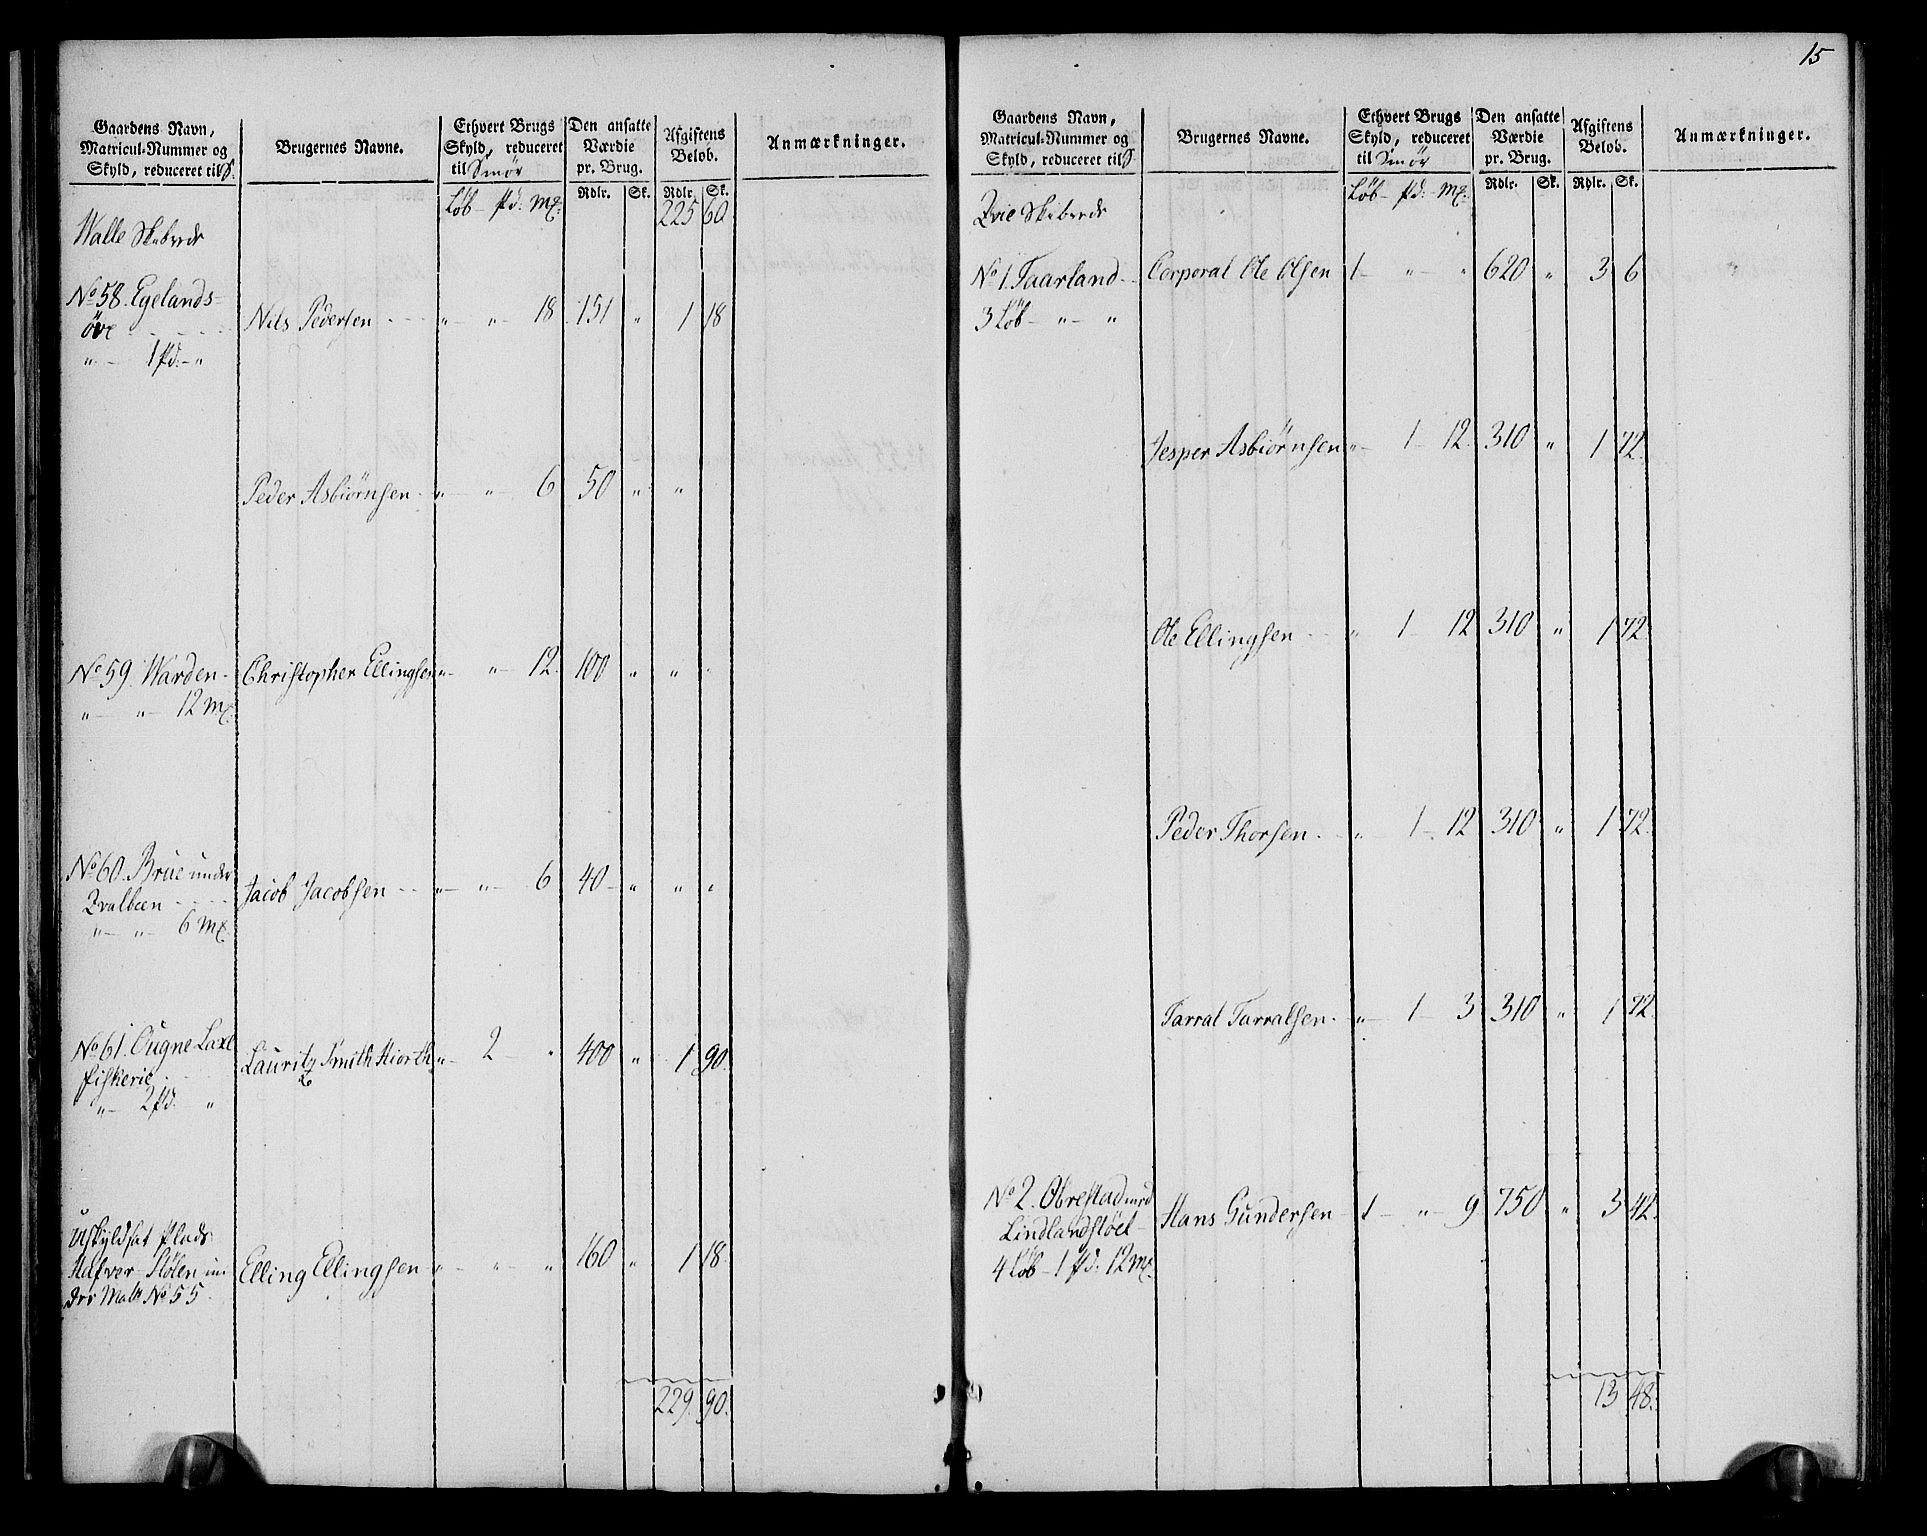 Gaardens Navn, Matricul-Nummer og Skyld, reduceret til S.
Brugernes Navne.
Ethvert Brugs Skyld, reduceret til Smör
Den ansatte Værdie pr. Brug.
Afgiftens Beløb.
Anmærkninger.
Rdlr. Sk. Rdlr. Sk.
Löb – pd: – Mk: 225 60
Walle Skibrede
No 58. Egelands=
öre Nils Pedersen " – " – 18 151 " 1 18
" – 1 pd: – "
Peder Asbiörnsen " – " – 6 50 " "
No 59. Warden Christopher Ellingsen " – " – 12 100 " " "
" – " – 12 Mk:
No 60. Brue under
Qvalben Jacob Jacobsen " – " – 6 40 " " "
" – " – 6 Mk:
No 61. Ougne Laxe
fiskerie Lauritz Smith Hiorth " – 2 – " 400 " 1 90.
" – 2 pd. "
Uskyldsat Plads
Hafver Stölen un
der Matr No 55 Elling Ellingsen " – " – " 160 " 1 18
229. 90.
15
Gaardens Navn, Matricul-Nummer og Skyld, reduceret til S.
Brugernes Navne.
Ethvert Brugs Skyld, reduceret til Smör
Den ansatte Værdie pr. Brug.
Afgiftens Beløb.
Anmærkninger.
Rdlr. Sk. Rdlr. Sk.
Löb – pd: – Mk:
Qvie Skibrede
No 1. Taarland Corporal Ole Olsen 1 – " – " 620 " 3 6
3 Löb – " – "
Jesper Asbiörnsen " – 1 – 12 310 " 1 72.
Ole Ellingsen " – 1 – 12 310 " 1 72
Peder Thorsen " – 1 – 12 310 " 1 72.
Tarral Tarralsen " – 1 – 3 310 " 1 72.
No 2. Obrestad med
Lindlandstöet Hans Gundersen 1 – " – 9 750 " 3 42.
4 Löb – 1 pd: 12 Mk:
13 48.